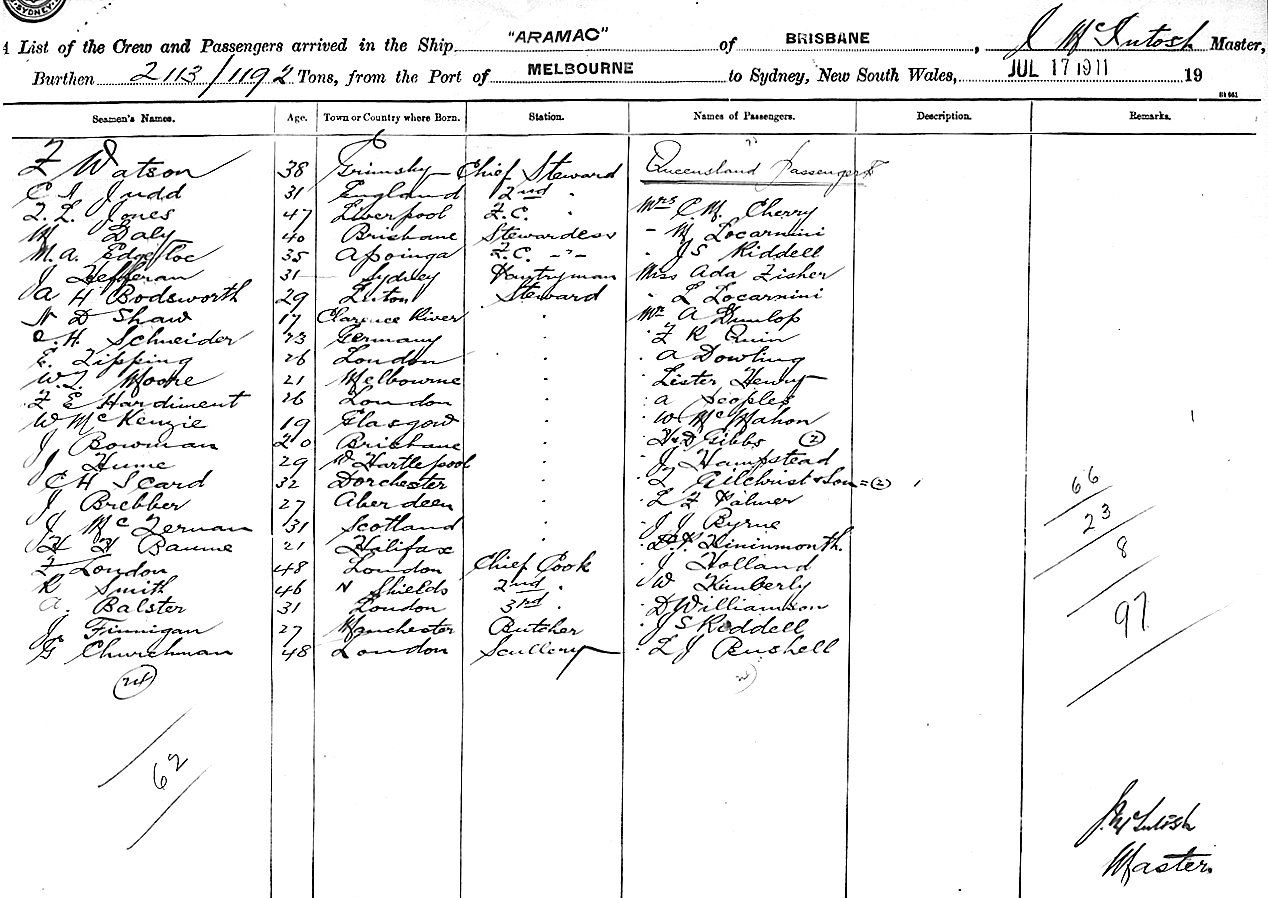 SYDNEY
List of the Crew and Passengers arrived in the Ship "ARAMAC" of BRISBANE, J McIntosh Master,
Burthen 2113/1192 Tons, from the Port of MELBOURNE to Sydney, New South Wales, JUL 17 1911 19
Seamen's Names. Age. Town or Country where Born. Station. Names of Passengers. Description. Remarks.
F Watson 38 Grimsby Chief Steward Queensland Passengers
C I Judd 31 England 2nd "
F. L. Jones 47 Liverpool F.C. " Mrs C. M. Cherry
M Daly 40 Brisbane Stewardess - M Locarnini
M. A. Edge 35 Apoinga F.C. -"- " J S Riddell
J Heffernan 31 Sydney Pantryman Miss Ada Fisher
A H Bodsworth 29 Luton Steward " L Locarnini
N D Shaw 17 Clarence River " Mr A Dunlop
C. H. Schneider 23 Germany " " F R Quin
E. Tipping 26 London " " A Dowling
W. F. Moore 21 Melbourne " " Lister Henry
F E Hardiment 26 London " " A Peoples
W McKenzie 19 Glasgow " " W McMahon
J Bowman 20 Brisbane " " H. D Gibbs (2)
J Hume 29 W Hartlepool " " J Hampstead
C H Scard 32 Dorchester " " Gilchrist & Son = (2)
J Brebber 27 Aberdeen " " L F Palmer
J McFernan 31 Scotland " " J J Byrne
H H Baume 21 Hilifax " " Hininmonth.
F London 48 London Chief Cook " J Holland
R Smith 46 N Shields 2nd " " W Kimberly
A. Balster 31 London 3rd " " D Williamson
J. Finnigan 27 Manchester Butcher " J S Riddell
G Churchman 48 London Scullery " L J Bushell
(24)
62
66
23
8
97
J. McIntosh
Master.